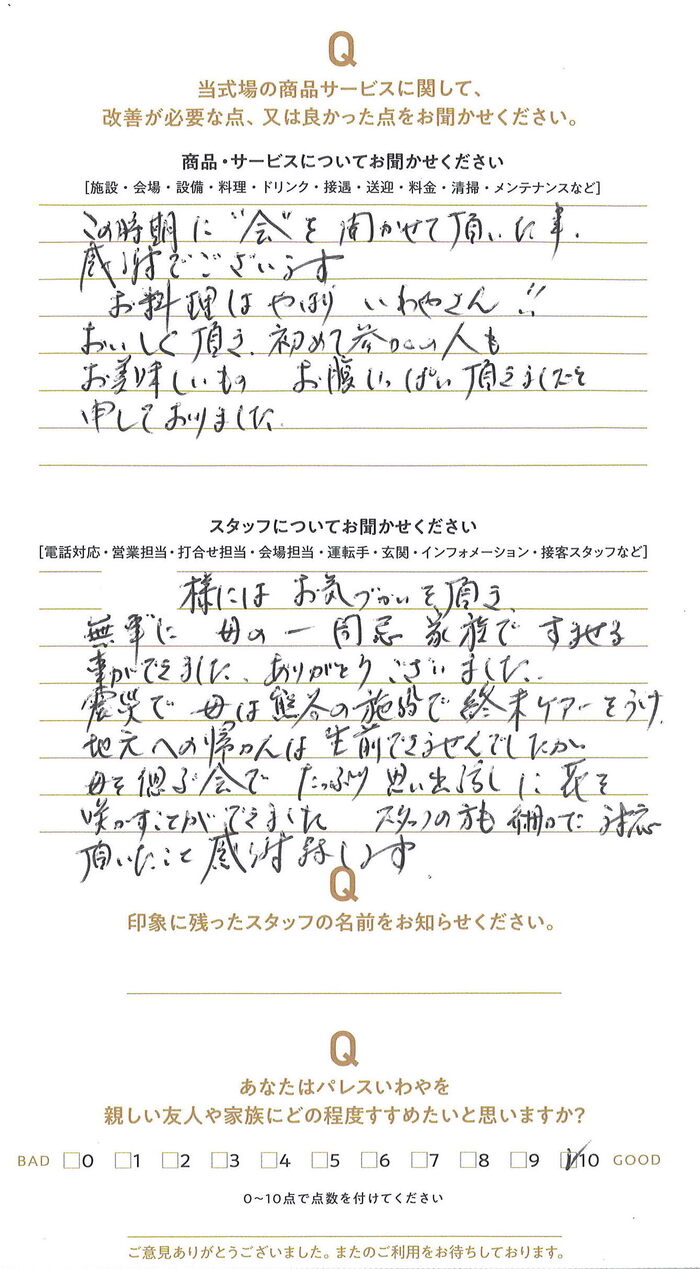 Q
当式場の商品サービスに関して、
改善が必要な点、又は良かった点をお聞かせください。
商品・サービスについてお聞かせください
[施設・会場・設備・料理・ドリンク・接遇・送迎・料金・清掃・メンテナンスなど]
この時期に“会”を開かせて頂いた事、
感謝でございます
お料理はやはり いわやさん!!
おいしく頂き、初めて参加の人も
お美味しいもの お腹いっぱい頂きましたを
申しておりました。
スタッフについてお聞かせください
[電話対応・営業担当・打合せ担当・会場担当・運転手・玄関・インフォメーション・接客スタッフなど]
様には お気づかいを頂き、
無事に 母の一周忌 家族で すませる
事ができました、ありがとうございました。
震災で 母は熊谷の施設で 終末ケアーをうけ、
地元への帰かんは 生前できませんでしたが
母を偲ぶ会で たっぷり 思い出話しに 花を
咲かすことができました スタッフの方も 細かに 対応
頂いたこと 感謝致します
Q
印象に残ったスタッフの名前をお知らせください。
Q
あなたはパレスいわやを
親しい友人や家族にどの程度すすめたいと思いますか?
BAD □0 □1 □2 □3 □4 □5 □6 □7 □8 □9 ☑10 GOOD
0〜10点で点数を付けてください
ご意見ありがとうございました。またのご利用をお待ちしております。